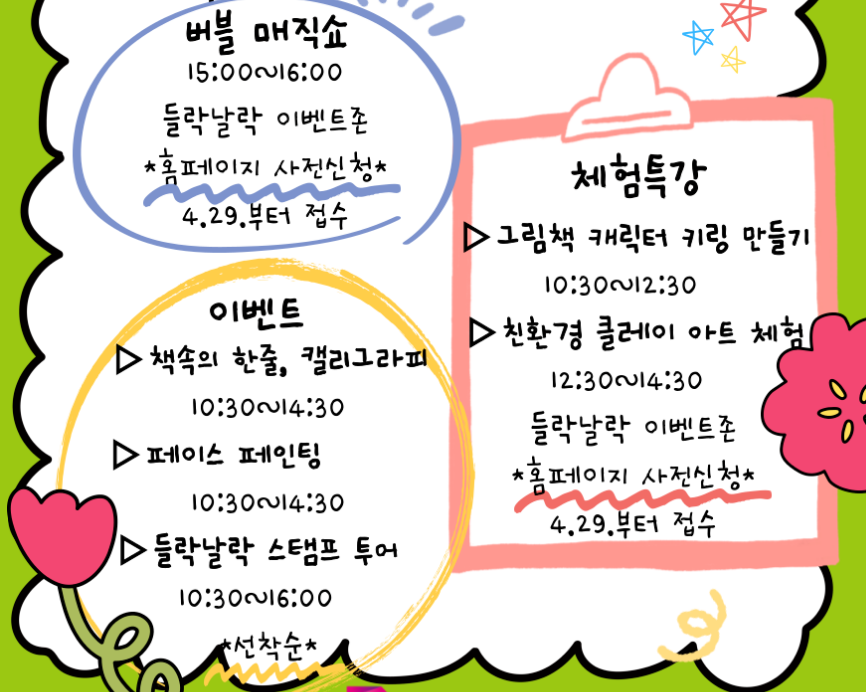 버블 매직쇼
15:00~16:00
들락날락 이벤트존
*홈페이지 사전신청*
4.29.부터 접수
이벤트
▷책속의 한줄, 캘리그라피
10:30~14:30
▷페이스 페인팅
10:30~14:30
▷들락날락 스탬프 투어
10:30~16:00
*선착순*
체험특강
▷그림책 캐릭터 키링 만들기
10:30~12:30
▷친환경 클레이 아트 체험
12:30~14:30
들락날락 이벤트존
*홈페이지 사전신청*
4.29.부터 접수